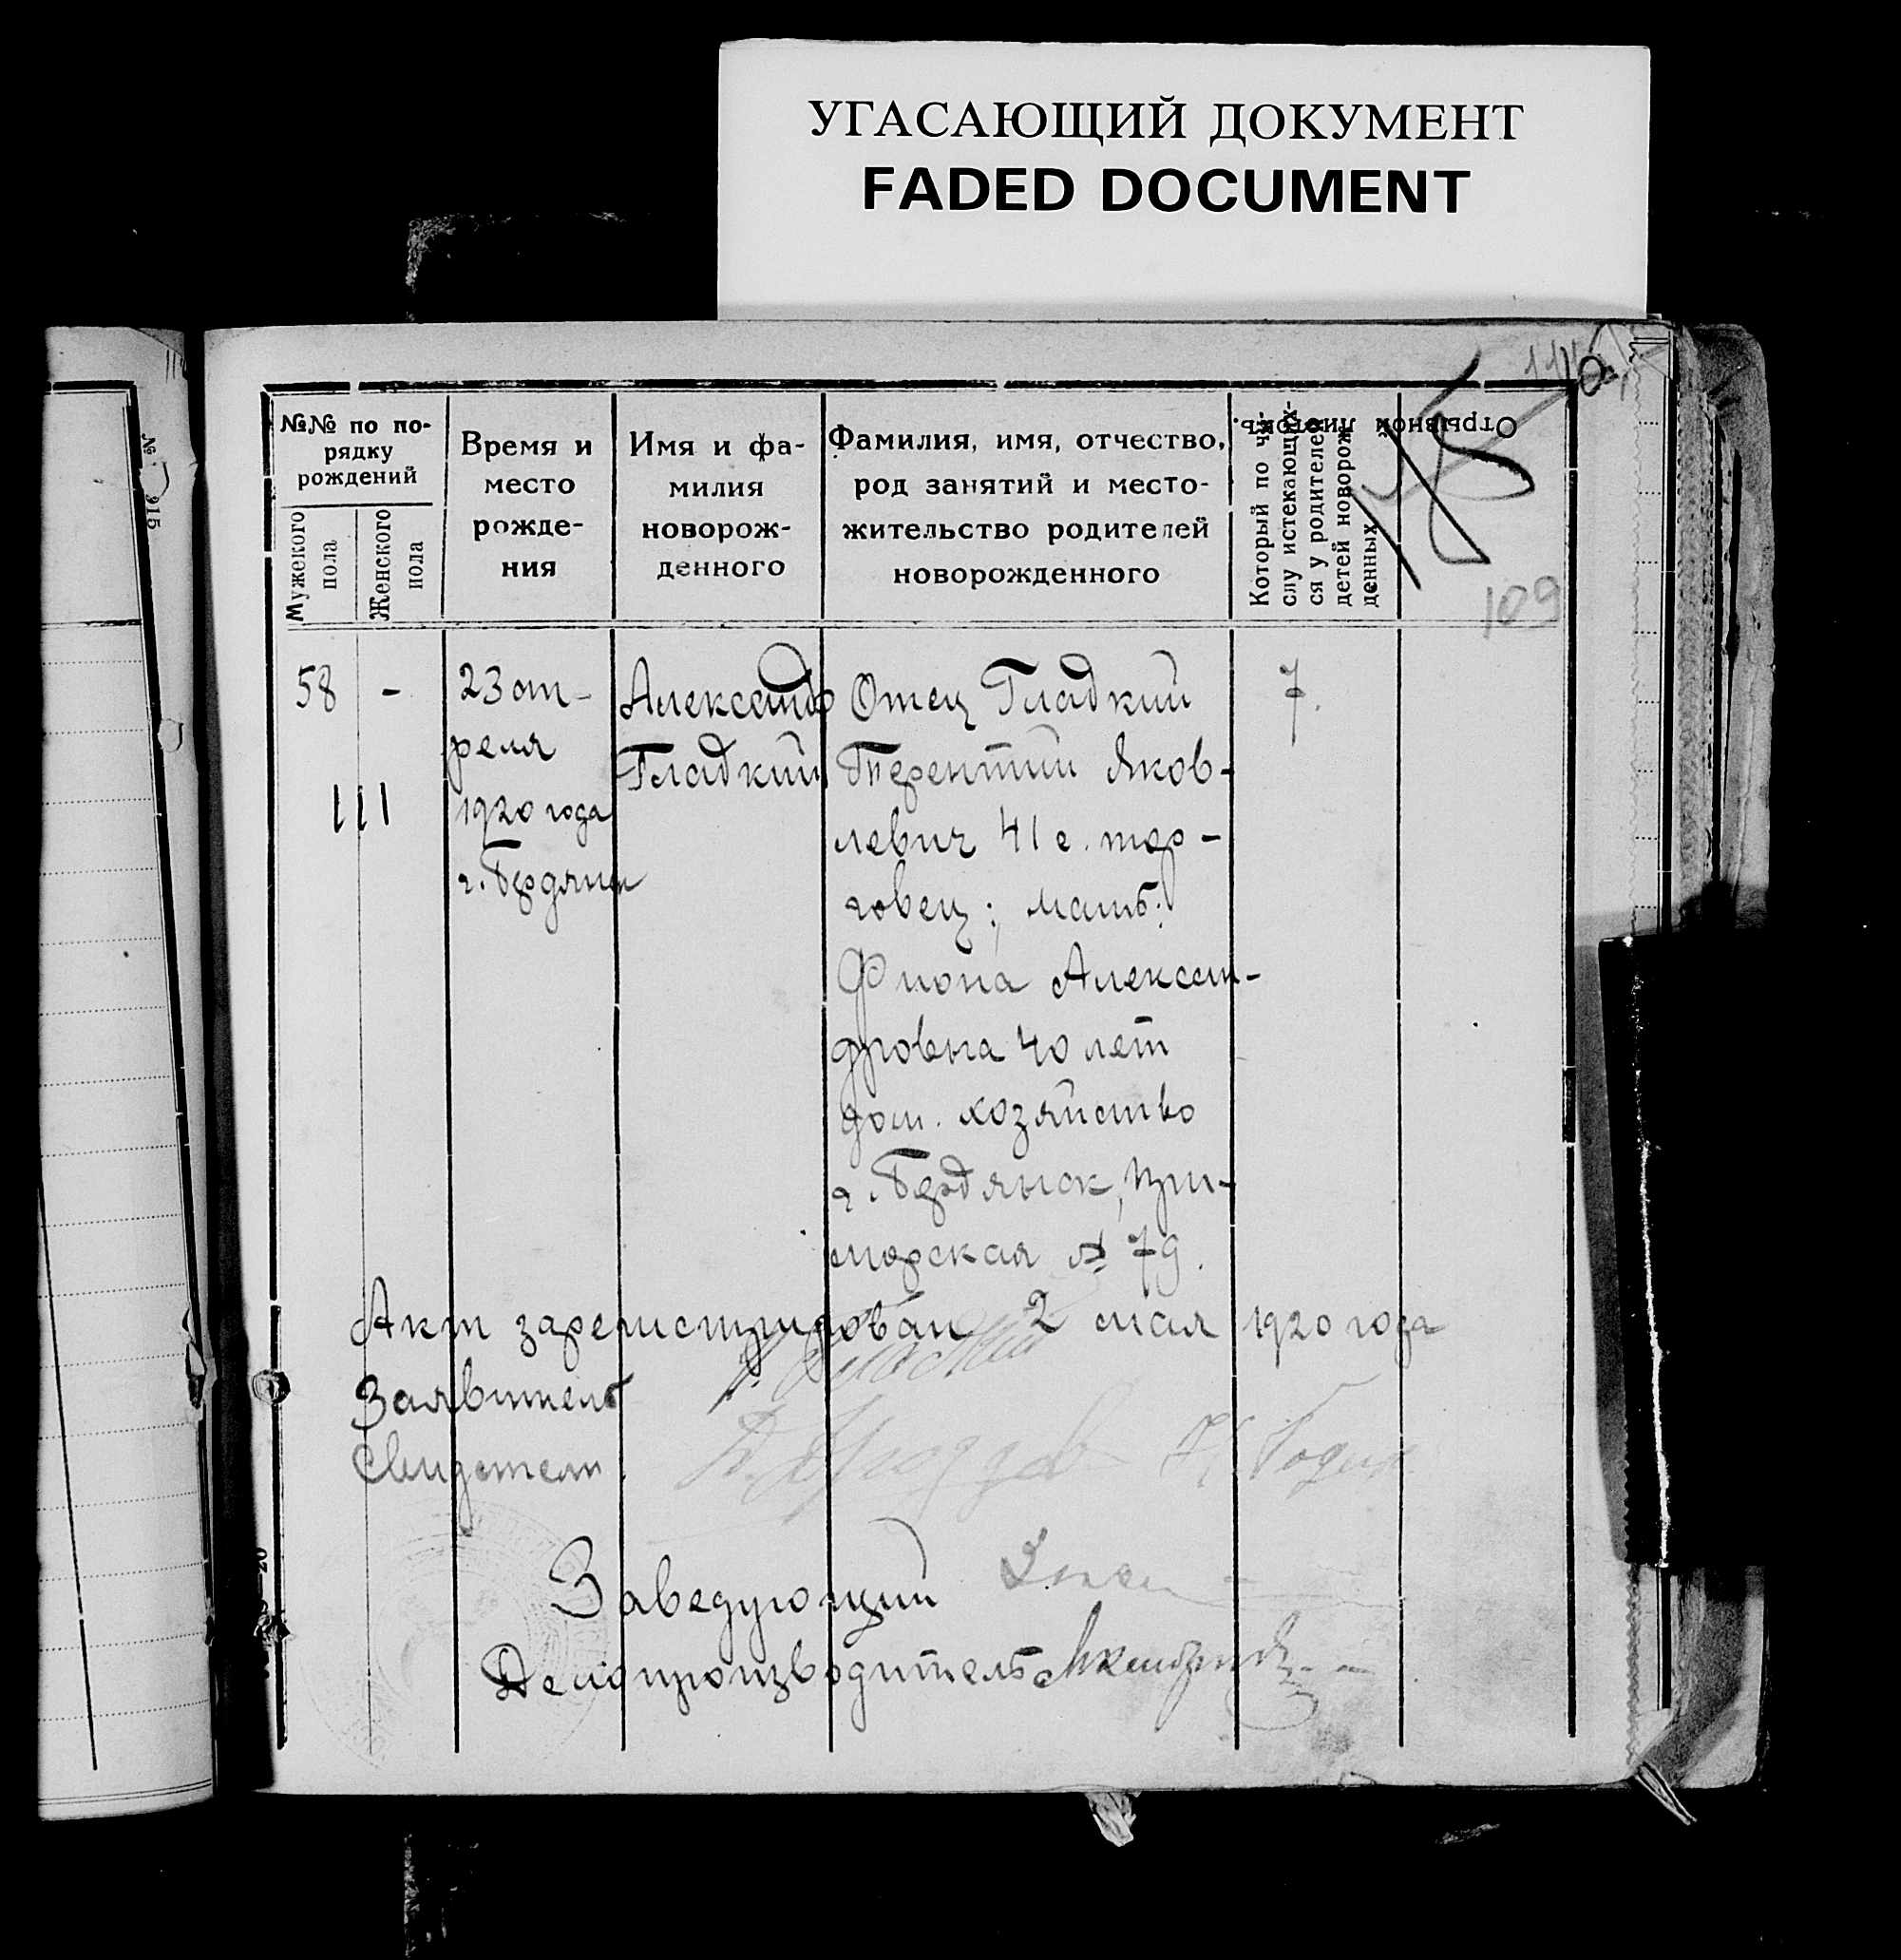 УГАСАЮЩИЙ ДОКУМЕНТ
FADED DOCUMENT
№№ по по-
рядку
рождений
Мужеского
пола
Женского
пола
Время и
место
рожде-
ния
Имя и фа-
милия
новорож-
денного
Фамилия, имя, отчество,
род занятий и место-
жительство родителей
новорожденного
Который по чи-
слу истекающих-
ся у родителей
детей новорож
денных
Отрывной листокъ.
109
58
-
111
23 ап-
реля
1920 года
г. Бердянск
Александр
Гладкий
Отец Гладкий
Терентий Яков-
левич 41 г. тор-
говец; мать:
Фиона Алексан-
дровна 40 лет
дом. хозяйство
г. Бердянск, При-
морская № 79.
7.
Акт зарегистрирован 2 мая 1920 года
Заявитель
Свидетели
Заведующий
Делопроизводитель